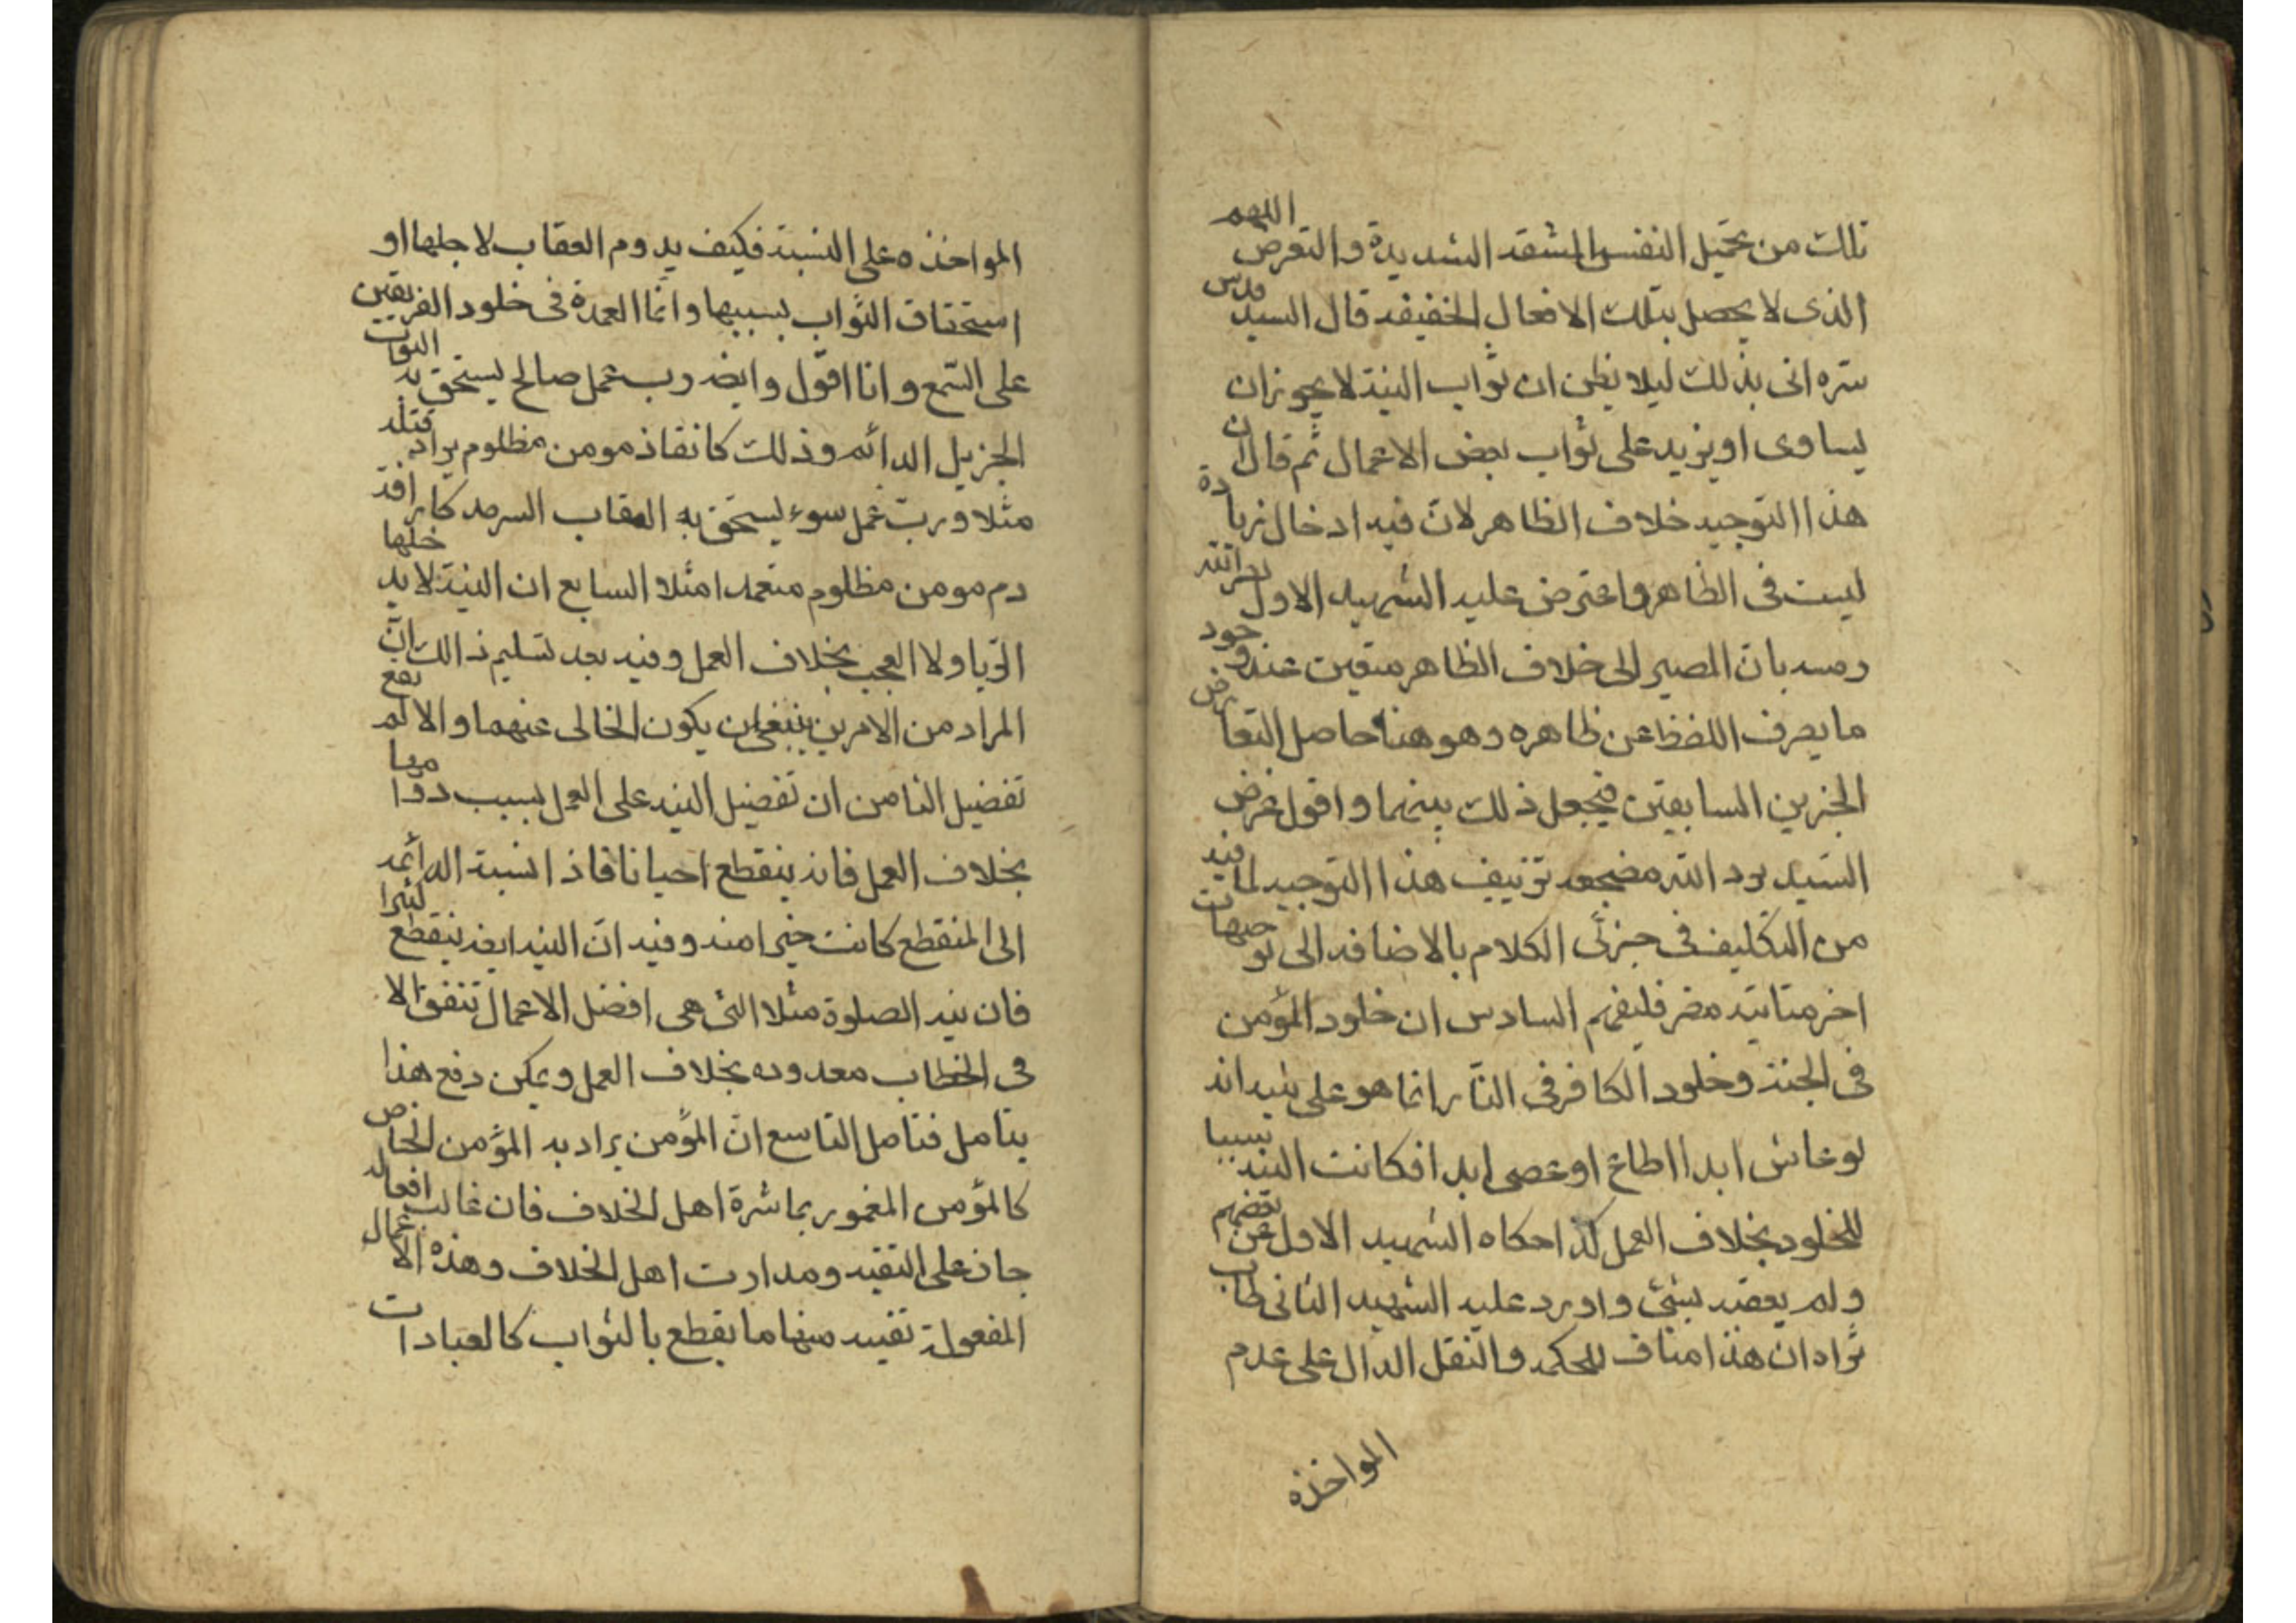 تلك من تحمّل النفس المشقه الشديدة والتعرض اللهم
الذى لا يحصل بتلك الافعال الخفيفه قال السيد قدس
سره اتى بذلك ليلا يظن ان ثواب النية لا يجوز ان
يساوى او يزيد على ثواب بعض الاعمال ثم قال ان
هذا التوجيه خلاف الظاهر لان فيه ادخال زيادة
ليست فى الظاهر واعترض عليه الشهيد الاول
رمسه بان المصير الى خلاف الظاهر متعين عند وجود
ما يصرف اللفظ عن ظاهره وهو هنا حاصل التعارض
الخبرين السابقين فيجعل ذلك بينهما واقول غرض
السيد برد الله مضجعه تزئيف هذا التوجيه لما فيه
من التكليف فى جزئى الكلام بالاضافه الى توجيهات
اخر متانته مضر فليفهم السادس ان خلود المؤمن
فى الجنة وخلود الكافر فى النار انما هو على نيه انه
لو عاش ابدا اطاع او عصى ابدا فكانت النيه سببا
للخلود بخلاف العمل كذا حكاه الشهيد الاول عن بعضهم
ولم يعقبه بشئ واورد عليه الشهيد الثانى طاب
ثراه ان هذا مناف للحكمه والنقل الدال على عدم
المواخذه
المواخذه على النسبة فكيف يدوم العقاب لاجلها او
استحقاق الثواب بسببها وانما العمدة فى خلود الفريقين
على السمع وانا اقول وايضه رب عمل صالح يستحق به الثواب
الجزيل الدائم وذلك كانقاذ مومن مظلوم يراد قتله
مثلا ورب عمل سوء يستحق به العقاب السرمد كاراقة
دم مومن مظلوم متعمدا مثلا السابع ان النية لا يدخلها
الريا ولا العجب بخلاف العمل وفيه بعد تسليم ذالك ان
المراد من الامرين ينبغى ان يكون الخالى عنهما والا لم يقع
تفضيل الثامن ان تفضيل النيه على العمل بسبب دوامها
بخلاف العمل فانه ينقطع احيانا فاذا نسبة الدائمه
الى المنقطع كانت خيرا منه وفيه ان النيه ايضه ينقطع كثيرا
فان نيه الصلوة مثلا التى هى افضل الاعمال تتفق الا
فى معدوده بخلاف العمل ويمكن دفع هذا
بتامل فتامل التاسع ان المؤمن يراد به المؤمن الخاص
كالمؤمن المغمور بماشرة اهل الخلاف فان غالب افعاله
جار على التقيه ومدارت اهل الخلاف وهذه الاعمال
المفعولة تقيه منها ما يقطع بالثواب كالعبادات